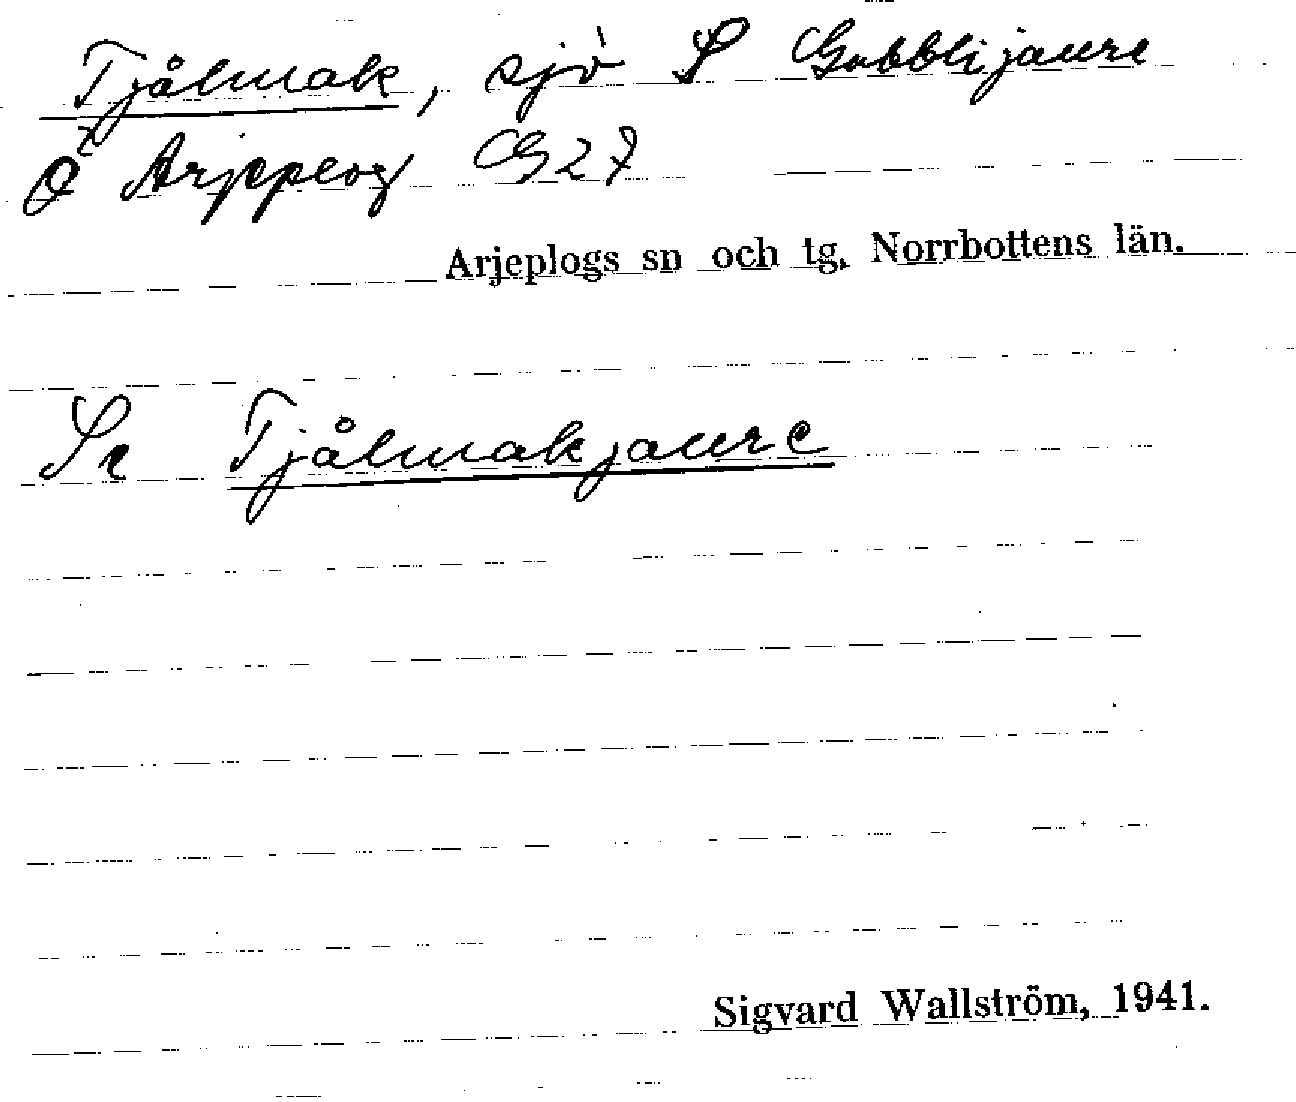 Tjålmak, sjö S Gubblijaure
Ö Arjeplog G27
Arjeplogs sn och tg, Norrbottens län.
Se Tjålmakjaure
Sigvard Wallström, 1941.